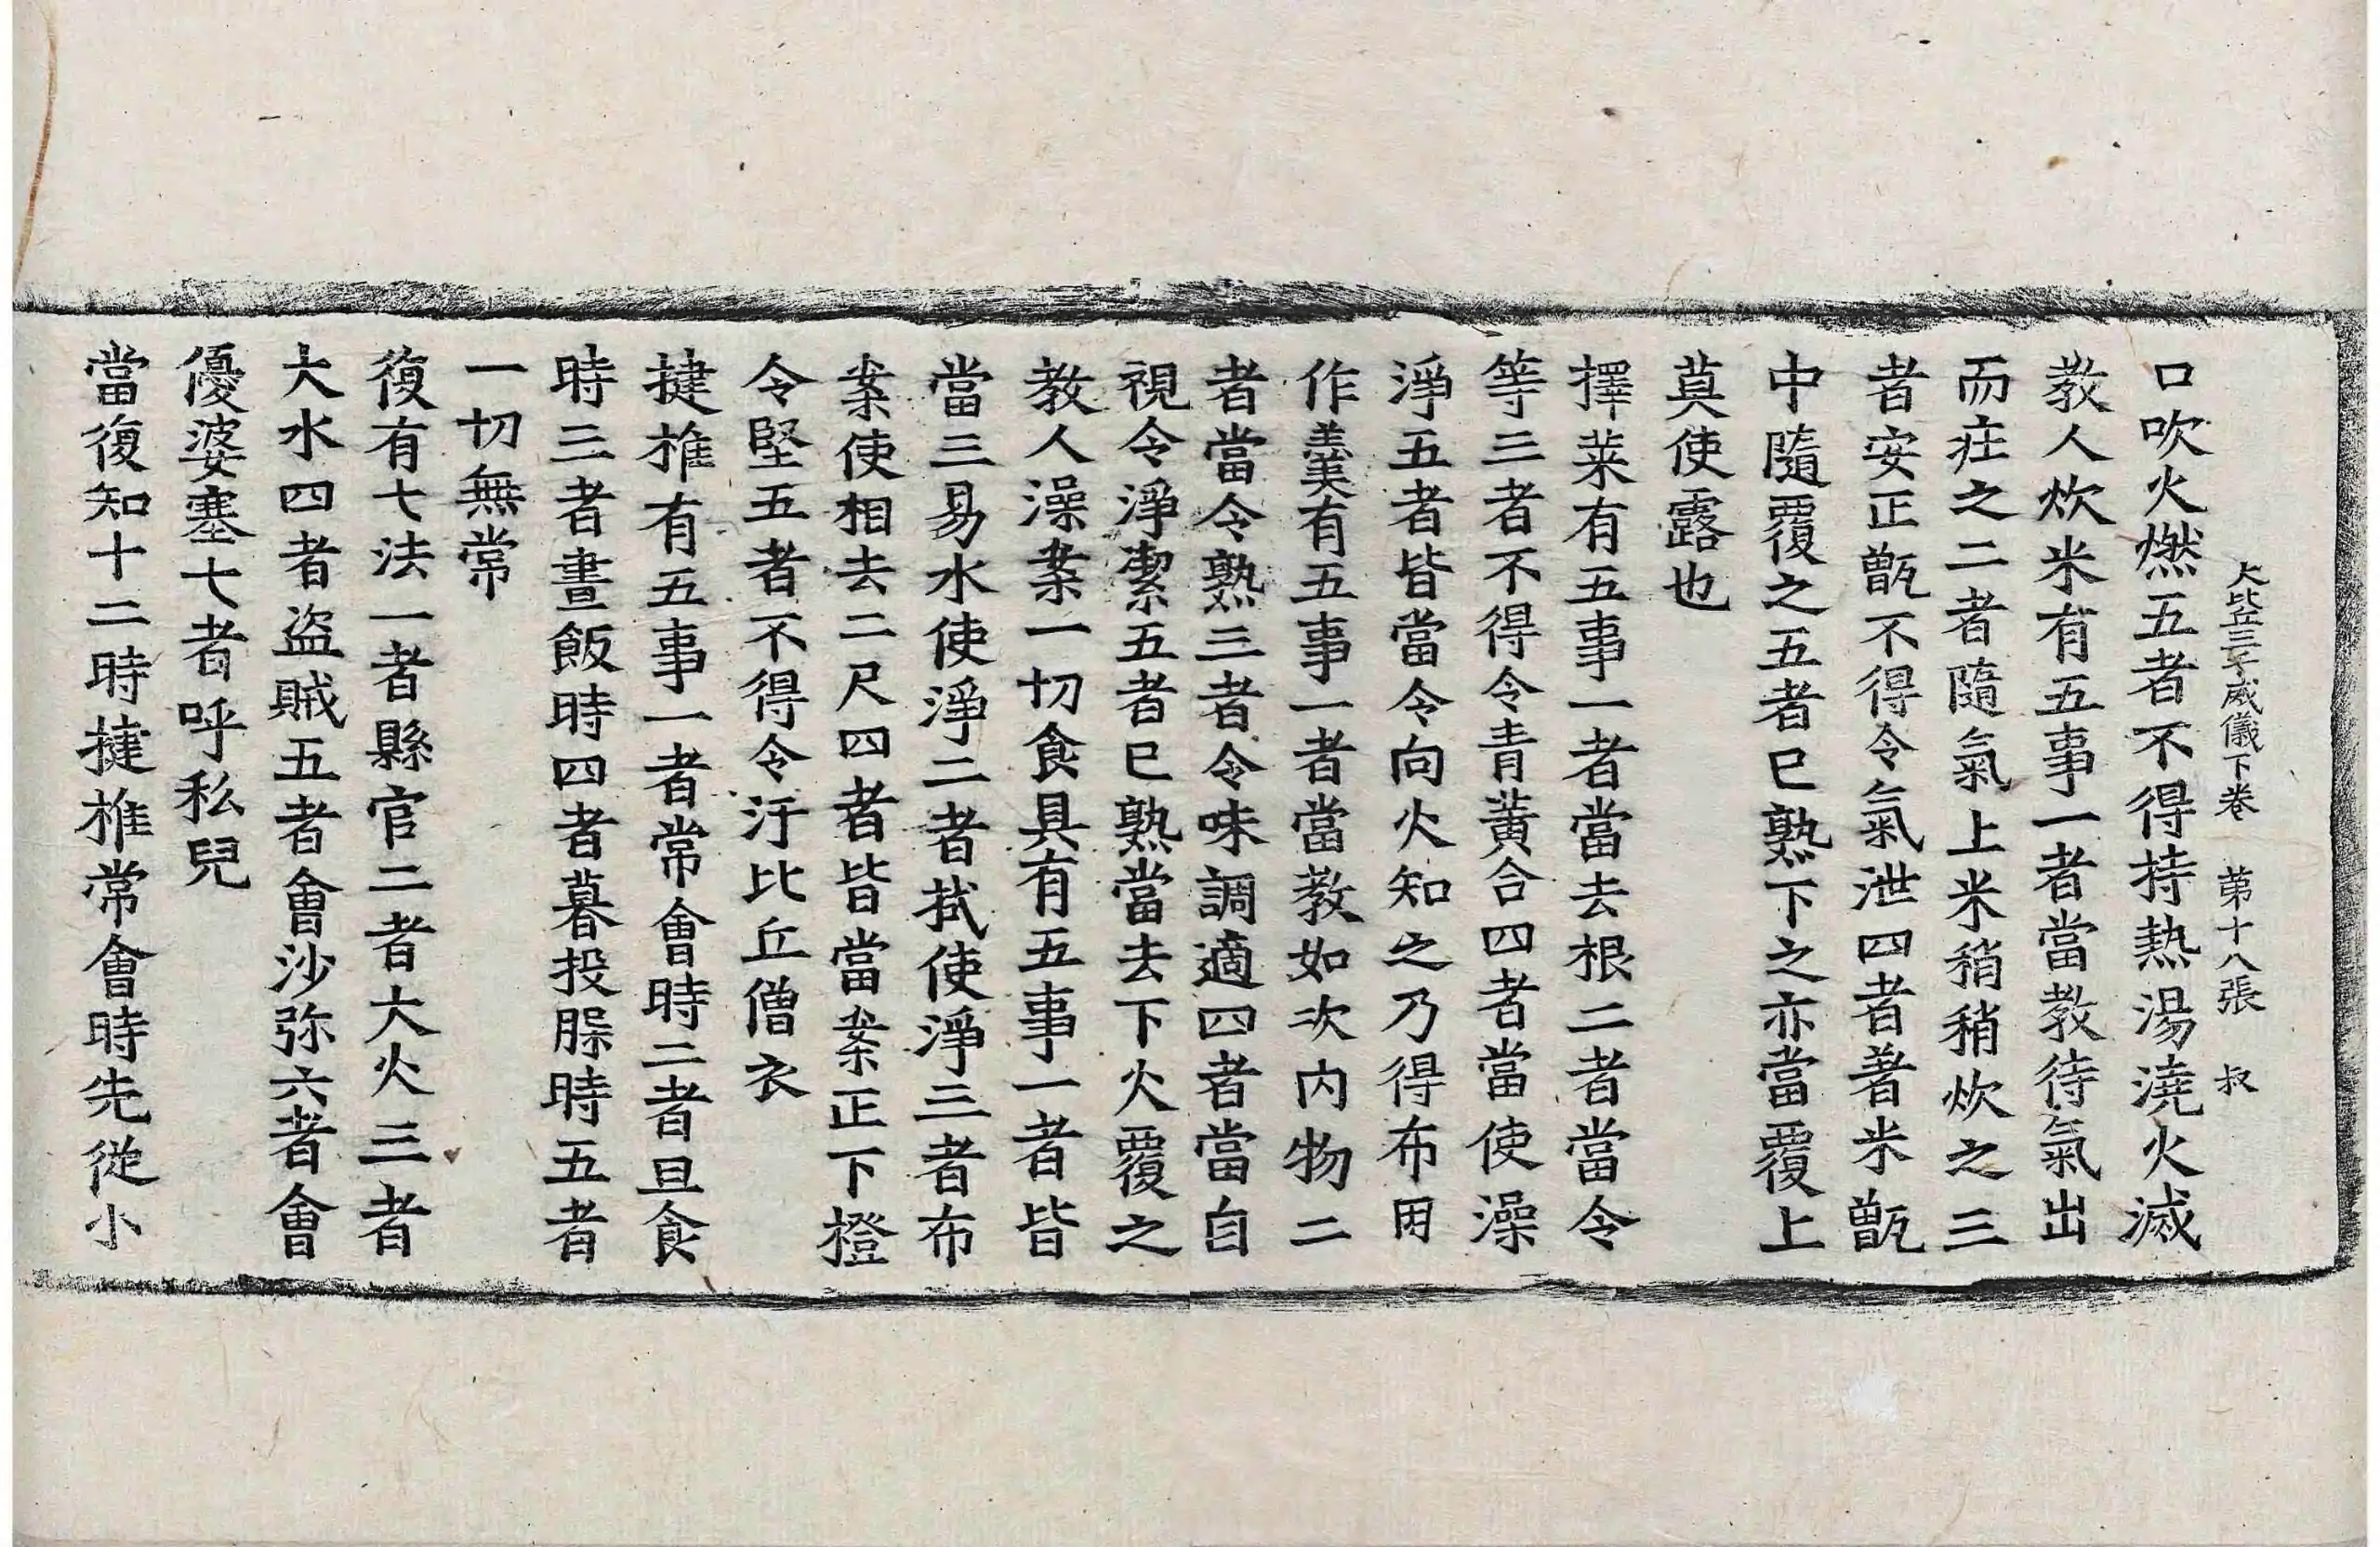 大比丘三千威儀下卷　第十八張　叔
口吹火燃五者不得持熱湯澆火滅
教人炊米有五事一者當教待氣出
而㽵之二者隨氣上米稍稍炊之三
者安正甑不得令氣泄四者著米甑
中隨覆之五者已熟下之亦當覆上
莫使露也
擇菜有五事一者當去根二者當令
等三者不得令青黃合四者當使澡
淨五者皆當令向火知之乃得布用
作羹有五事一者當教如次內物二
者當令熟三者令味調適四者當自
視令淨潔五者已熟當去下火覆之
教人澡案一切食具有五事一者皆
當三易水使淨二者拭使淨三者布
案使相去二尺四者皆當案正下橙
令堅五者不得令汙比丘僧衣
揵椎有五事一者常會時二者旦食
時三者晝飯時四者暮投䐗時五者
一切無常
復有七法一者縣官二者大火三者
大水四者盜賊五者會沙弥六者會
優婆塞七者呼私兒
當復知十二時揵椎常會時先從小